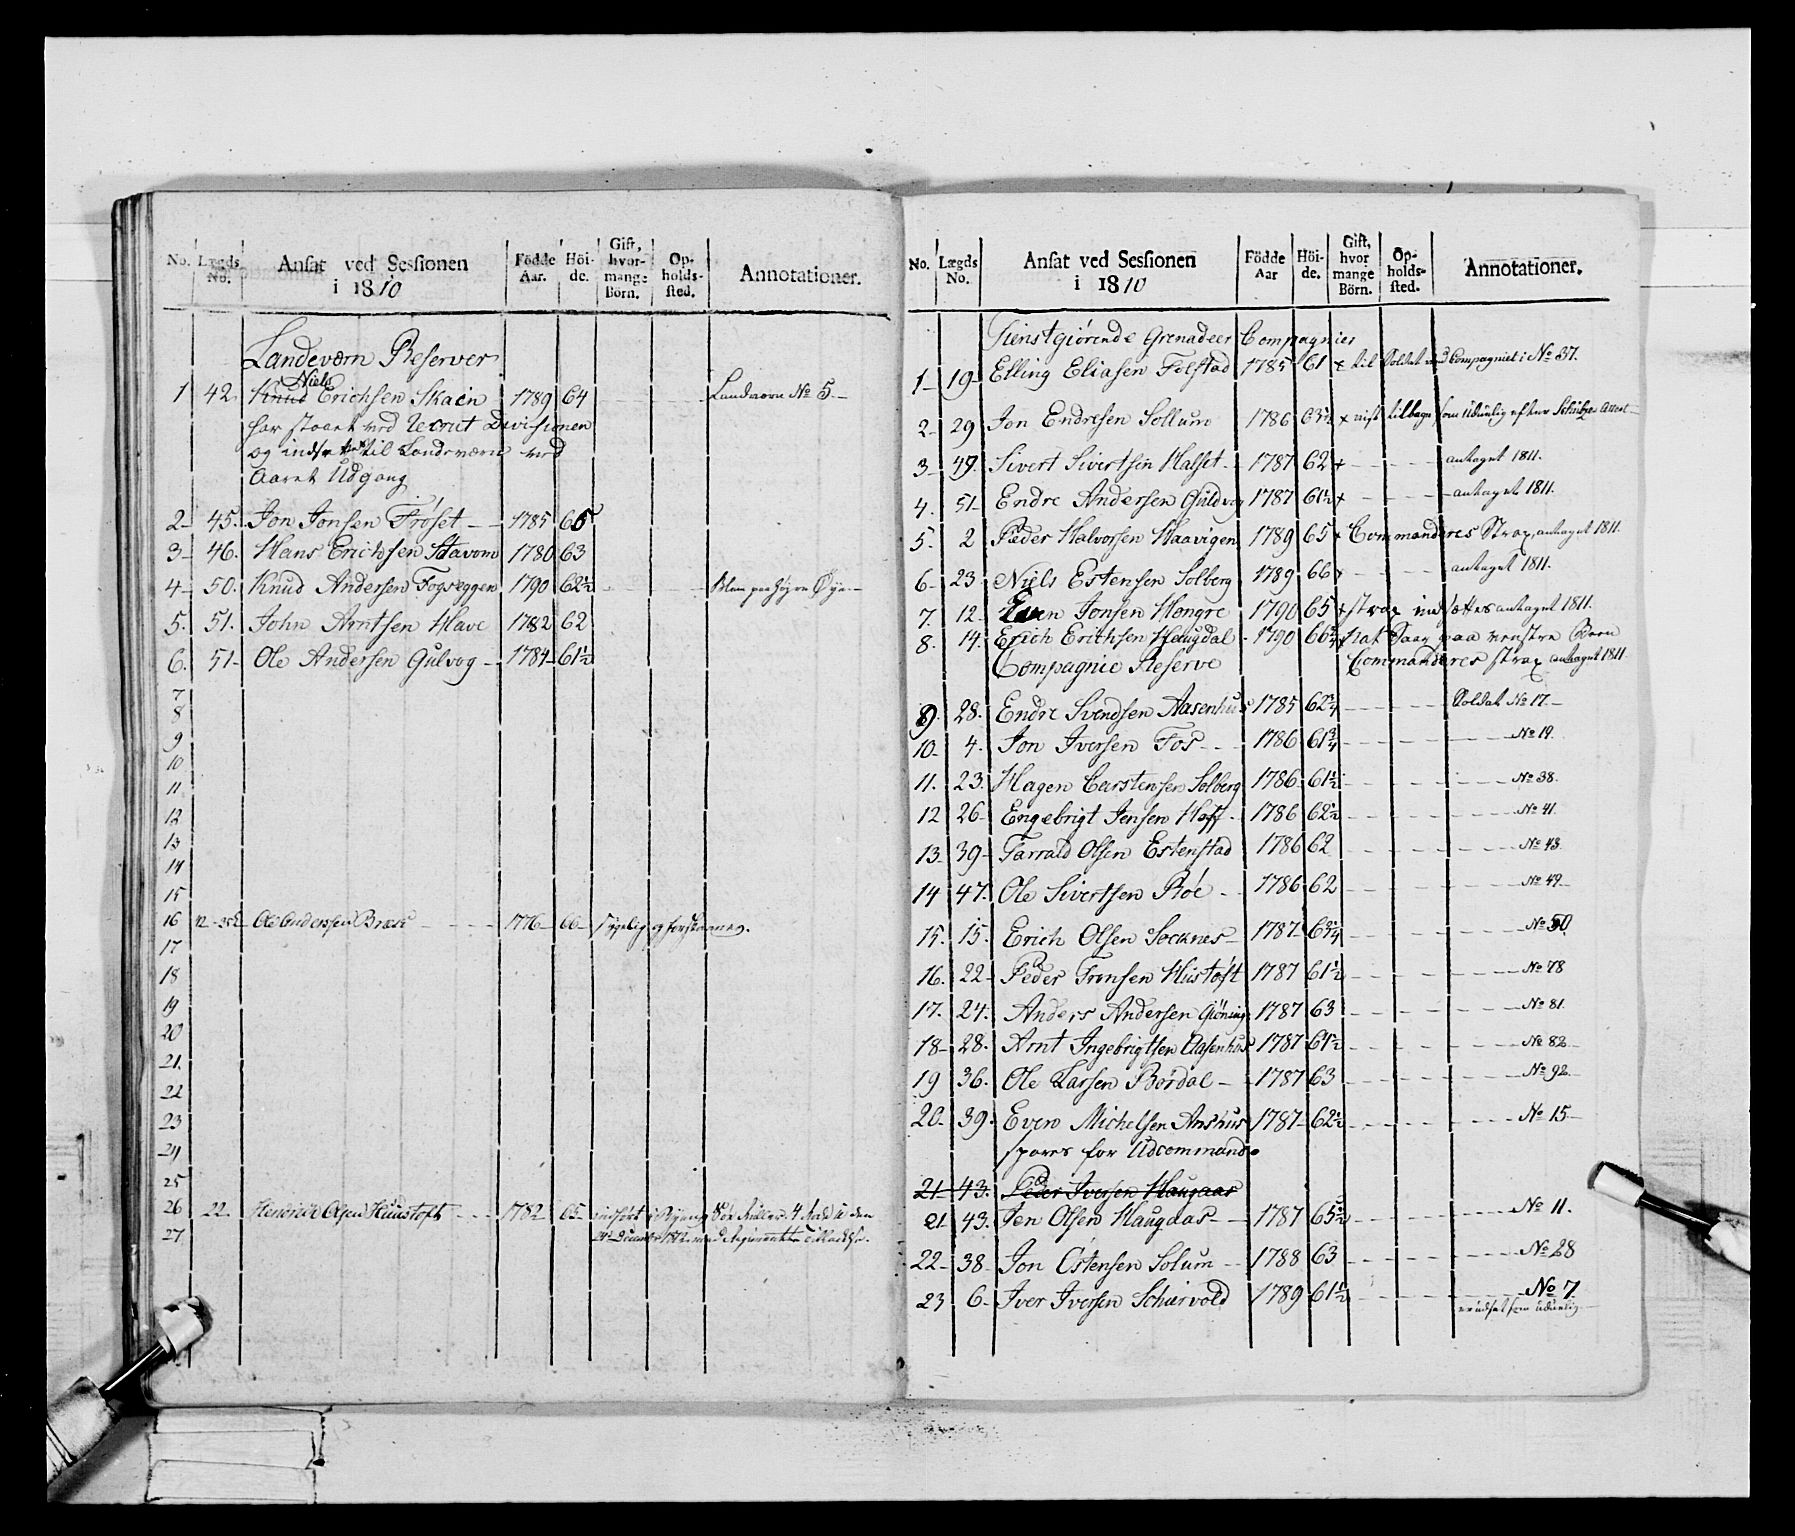 No. Lægds No. Ansat ved Sessionen i 1810 Födde Aar. Höi- de. Gift, hvor- mange Börn. Op- holds- sted. Annotationer.
Landeværn Reserver
Niels
1 42. Knud Erichsen Skaein 1789 64 Landværn No 5.
har staaet ved Recrut Divisionen
og indsættes til Landeværn ved
Aaret Udgang
2 45. Jon Jonsen Fróset 1785 65
3 46. Hans Erichsen Stavom 1780 63
4 50. Knud Andersen Fogseggen 1790 62½ Blem paa høyre Øye
5. 51. John Arntsen Have 1782 62
6. 51 Ole Andersen Gulvog 1784 61½
7
8
9
10
11
12
13
14
15
16 12 Ole Andersen Bræk 1776 66 sygelig
17
18
19
20
21.
22
23
24
25
26 22 Hendrik Olsen Huustoft 1782 65
27
No. Lægds No. Ansat ved Sessionen i 1810 Födde Aar Höi- de. Gift, hvor mange Börn. Op- holds- sted. Annotationer.
Tienstgiörende Grenadeer Compagnier
1 19 Elling Eliasen Folstad 1785 61 til Soldat ved Compagniet i No 37.
2 29 Jon Endresen Sollum 1786 63½ x vist tilbage som Udünlig efter
3 49. Sivert Sivertsen Halset 1787 62 x antaget 1811.
4. 51 Endre Andersen Guldvog 1787 61½ x antaget 1811.
5. 2 Peder Halvorsen Haavigen 1789 65 x Commanderes Strax, antaget 1811.
6 23 Niels Estensen Solberg 1789 66 x antaget 1811.
7. 12 Even Jonsen Hongre 1790 65 x strax indsættes antaget 1811.
8. 14. Erich Erichsen Haugdal 1790 66¾ x hat Saar paa venstre Been
Compagnie Reserve Commanderes strax antaget 1811.
9. 28. Endre Svendsen Aasenhus 1785 62¾ Soldat No 17.
10 4. Jon Iversen Fos 1786 61¾ No 19
11. 23. Hagen Carstensen Solberg 1786 61½ No 38.
12 26 Engebrigt Jensen Hoff 1786 62½ No 41.
13 39 Tarrald Olsen Estenstad 1786 62 No 43.
14 47. Ole Sivertsen Róe 1786 62 No 49.
15. 15. Erich Olsen Socknes 1787 No 50.
16. 22 Peder Tronsen Hustóft 1787 61½ No 78
17. 24. Anders Andersen Gióning 1787 63 No 81.
18 28. Arnt Ingebrigtsen Aasenhus 1787 61½ No 82
19 36. Ole Larsen Bordal 1787 63 No 92.
20. 39. Even Michelsen Anshus 1787 62½ No 15
spares for Udcommando
21 43. Peder Iversen Haugaas
21 43. Jen Olsen Haugaas 1787 65½ No 11.
22 38 Jon Östensen Solum 1788 63 No 28
23 6 Iver Iversen Schiervold 1789 61½ No 7.
er udsat som udünlig